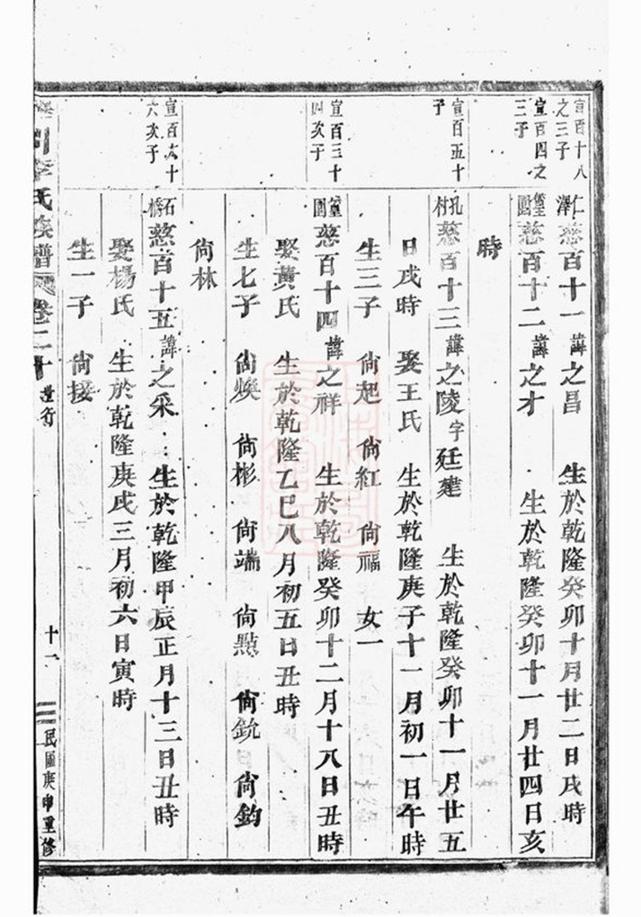 宣百十八之三子
仁澤慈百十一諱之昌 生於乾隆癸卯十月廿二日戌時
宣百四之三子
篁園慈百十二諱之才 生於乾隆癸卯十一月廿四日亥
時
宣百五十子
孔村慈百十三諱之陵字廷建 生於乾隆癸卯十一月廿五
日戌時 娶王氏 生於乾隆庚子十一月初一日午時
生三子 尙起 尙紅 尙福 女一
宣百三十四次子
篁園慈百十四諱之祥 生於乾隆癸卯十二月十八日丑時
娶黃氏 生於乾隆乙巳八月初五日丑時
生七子 尙煥 尙彬 尙端 尙點 尙銃 尙鈞
尙林
宣百六十六次子
石橋慈百十五諱之采 生於乾隆甲辰正月十三日丑時
娶楊氏 生於乾隆庚戌三月初六日寅時
生一子 尙接
川李氏族譜 卷二十 行 十一 民國庚申重修